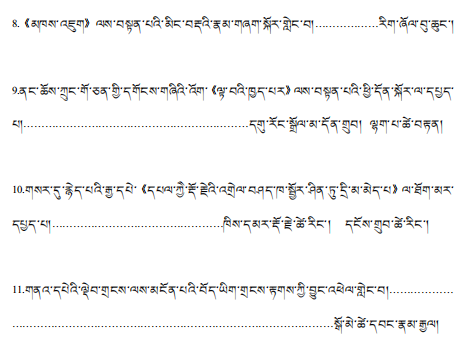 8.《མཁས་འཇུག》 ལས་བསྟན་པའི་མིང་བརྡའི་རྣམ་གཞག་སྐོར་གླེང་བ།………………རིག་ཞོལ་བུ་ཆུང་།
9.ནང་ཆོས་ཀྲུང་གོ་ཅན་གྱི་དགོངས་གཞིའི་འོག་《ལྟ་བའི་ཁྱད་པར》ལས་བསྟན་པའི་ཕྱི་དོན་སྐོར་ལ་དཔྱད་
པ།……………………………………………………དགུ་རོང་སྒྲོལ་མ་དོན་གྲུབ། ལྷག་པ་ཚེ་བརྟན།
10.གསར་དུ་རྙེད་པའི་རྒྱ་དཔེ་《དཔལ་ཀྱཻ་རྡོ་རྗེའི་འགྲེལ་བཤད་ཁ་སྦྱོར་ཤིན་ཏུ་དྲི་མ་མེད་པ》ལ་ཐོག་མར་
དཔྱད་པ།………………………………………ཁྲིས་དམར་རྡོ་རྗེ་ཚེ་རིང་། དངོས་གྲུབ་ཚེ་རིང་།
11.གནའ་དཔེའི་ལྡེབ་གྲངས་ལས་མངོན་པའི་བོད་ཡིག་གྲངས་རྟགས་ཀྱི་བྱུང་འཕེལ་གླེང་བ།………………
……………………………………………………………………………སྒོ་མེ་ཚེ་དབང་རྣམ་རྒྱལ།